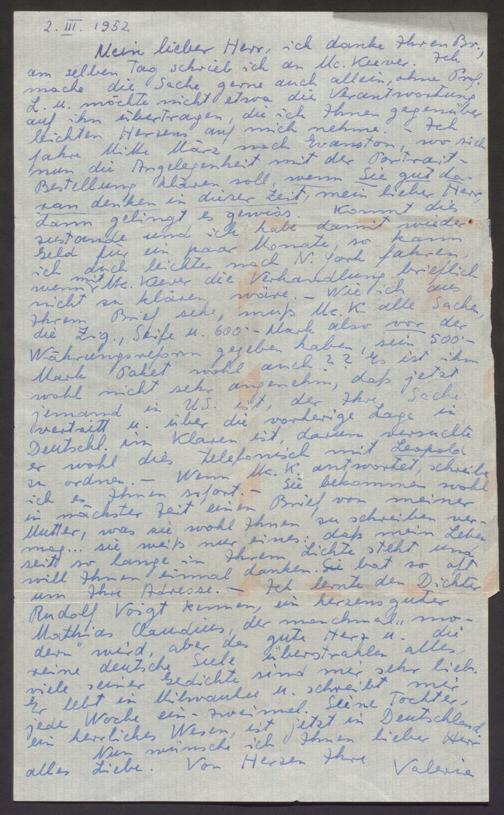 2. III. 1952
Mein lieber Herr, ich danke Ihren Br.,
am selben Tag schrieb ich an Mc. Keever. Ich
mache die Sache gerne auch allein, ohne Prof.
L. u. möchte nicht etwa die Verantwortung
auf ihn übertragen, die ich Ihnen gegenüber
leichten Herzens auf mich nehme. – Ich
fahre Mitte März nach Evanston, wo sich
nun die Angelegenheit mit der Portrait-
Bestellung klären soll, wenn Sie gut da-
ran denken in dieser Zeit, mein lieber Herr
dann gelingt es gewiss. Kommt dies
zustande und ich habe damit wieder
Geld für ein paar Monate, so kann
ich auch leichter nach N. York fahren,
wenn mit Mc. Keever die Verhandlung brieflich
nicht zu klären, wäre. – Wie ich aus
Ihrem Brief sehe, muß Mc. K alle Sachen,
die Zig., Seife u. 600.- Mark also vor der
Währungsreform gegeben haben, sein 500-
Mark Paket wohl auch?? Es ist ihm
wohl nicht sehr angenehm, daß jetzt
jemand in U.S. ist, der Ihre Sache
vertritt u. über die vorherige Lage in
Deutschl. im Klaren ist, darum versuchte
er wohl dies telefonisch mit Leopold
zu ordnen. – Wenn Mc. K. antwortet, schreibe
ich es Ihnen sofort. – Sie bekommen wohl
in nächster Zeit einen Brief von meiner
Mutter, was sie wohl Ihnen zu schreiben ver-
mag... sie weiß nur eines: daß mein Leben
seit so lange in Ihrem Lichte steht und
will Ihnen einmal danken. Sie bat so oft
um Ihre Adresse. – Ich lernte den Dichter
Rudolf Voigt kennen, ein herzensguter
Mathias Claudius, der manchmal „mo-
dern" wird, aber das gute Herz u. die
reine deutsche Seele überstrahlen alles,
viele seiner Gedichte sind mir sehr lieb.
Er lebt in Milwaukee u. schreibt mir
jede Woche ein-zweimal. Seine Tochter,
ein herrliches Wesen, ist jetzt in Deutschland.
Nun wünsche ich Ihnen lieber Herr
alles Liebe. Von Herzen Ihre Valerie